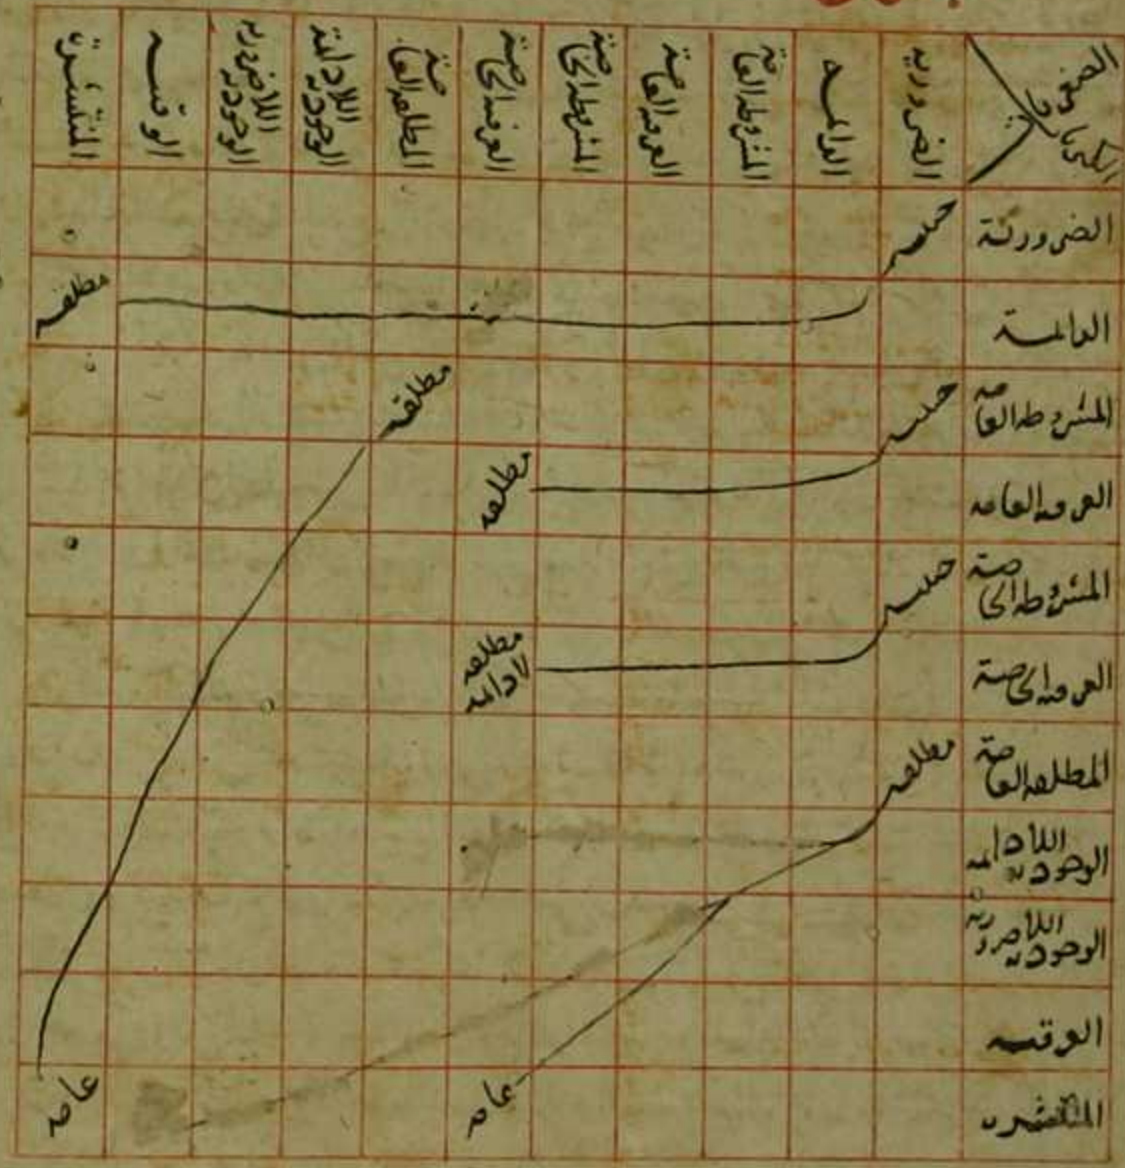 الصغريات
الكبريات
الضرورية
الدائمة
المشروطة العامة
العرفية العامة
المشروطة الخاصة
العرفية الخاصة
المطلقة العامة
الوجودية اللادائمة
الوجودية اللاضرورية
الوقتيه
المنتشرة
الضرورية
حينيه
الدائمة
مطلقه
المشروطه العامه
حينيه
مطلقه
العرفيه العامه
مطلقه
المشروطه الخاصة
حينيه
العرفيه الخاصة
مطلقه لادائمه
المطلقه العامة
مطلقه
الوجوديه اللادائمه
الوجوديه اللاضروريه
الوقتيه
المنتشره
عامه
عامه